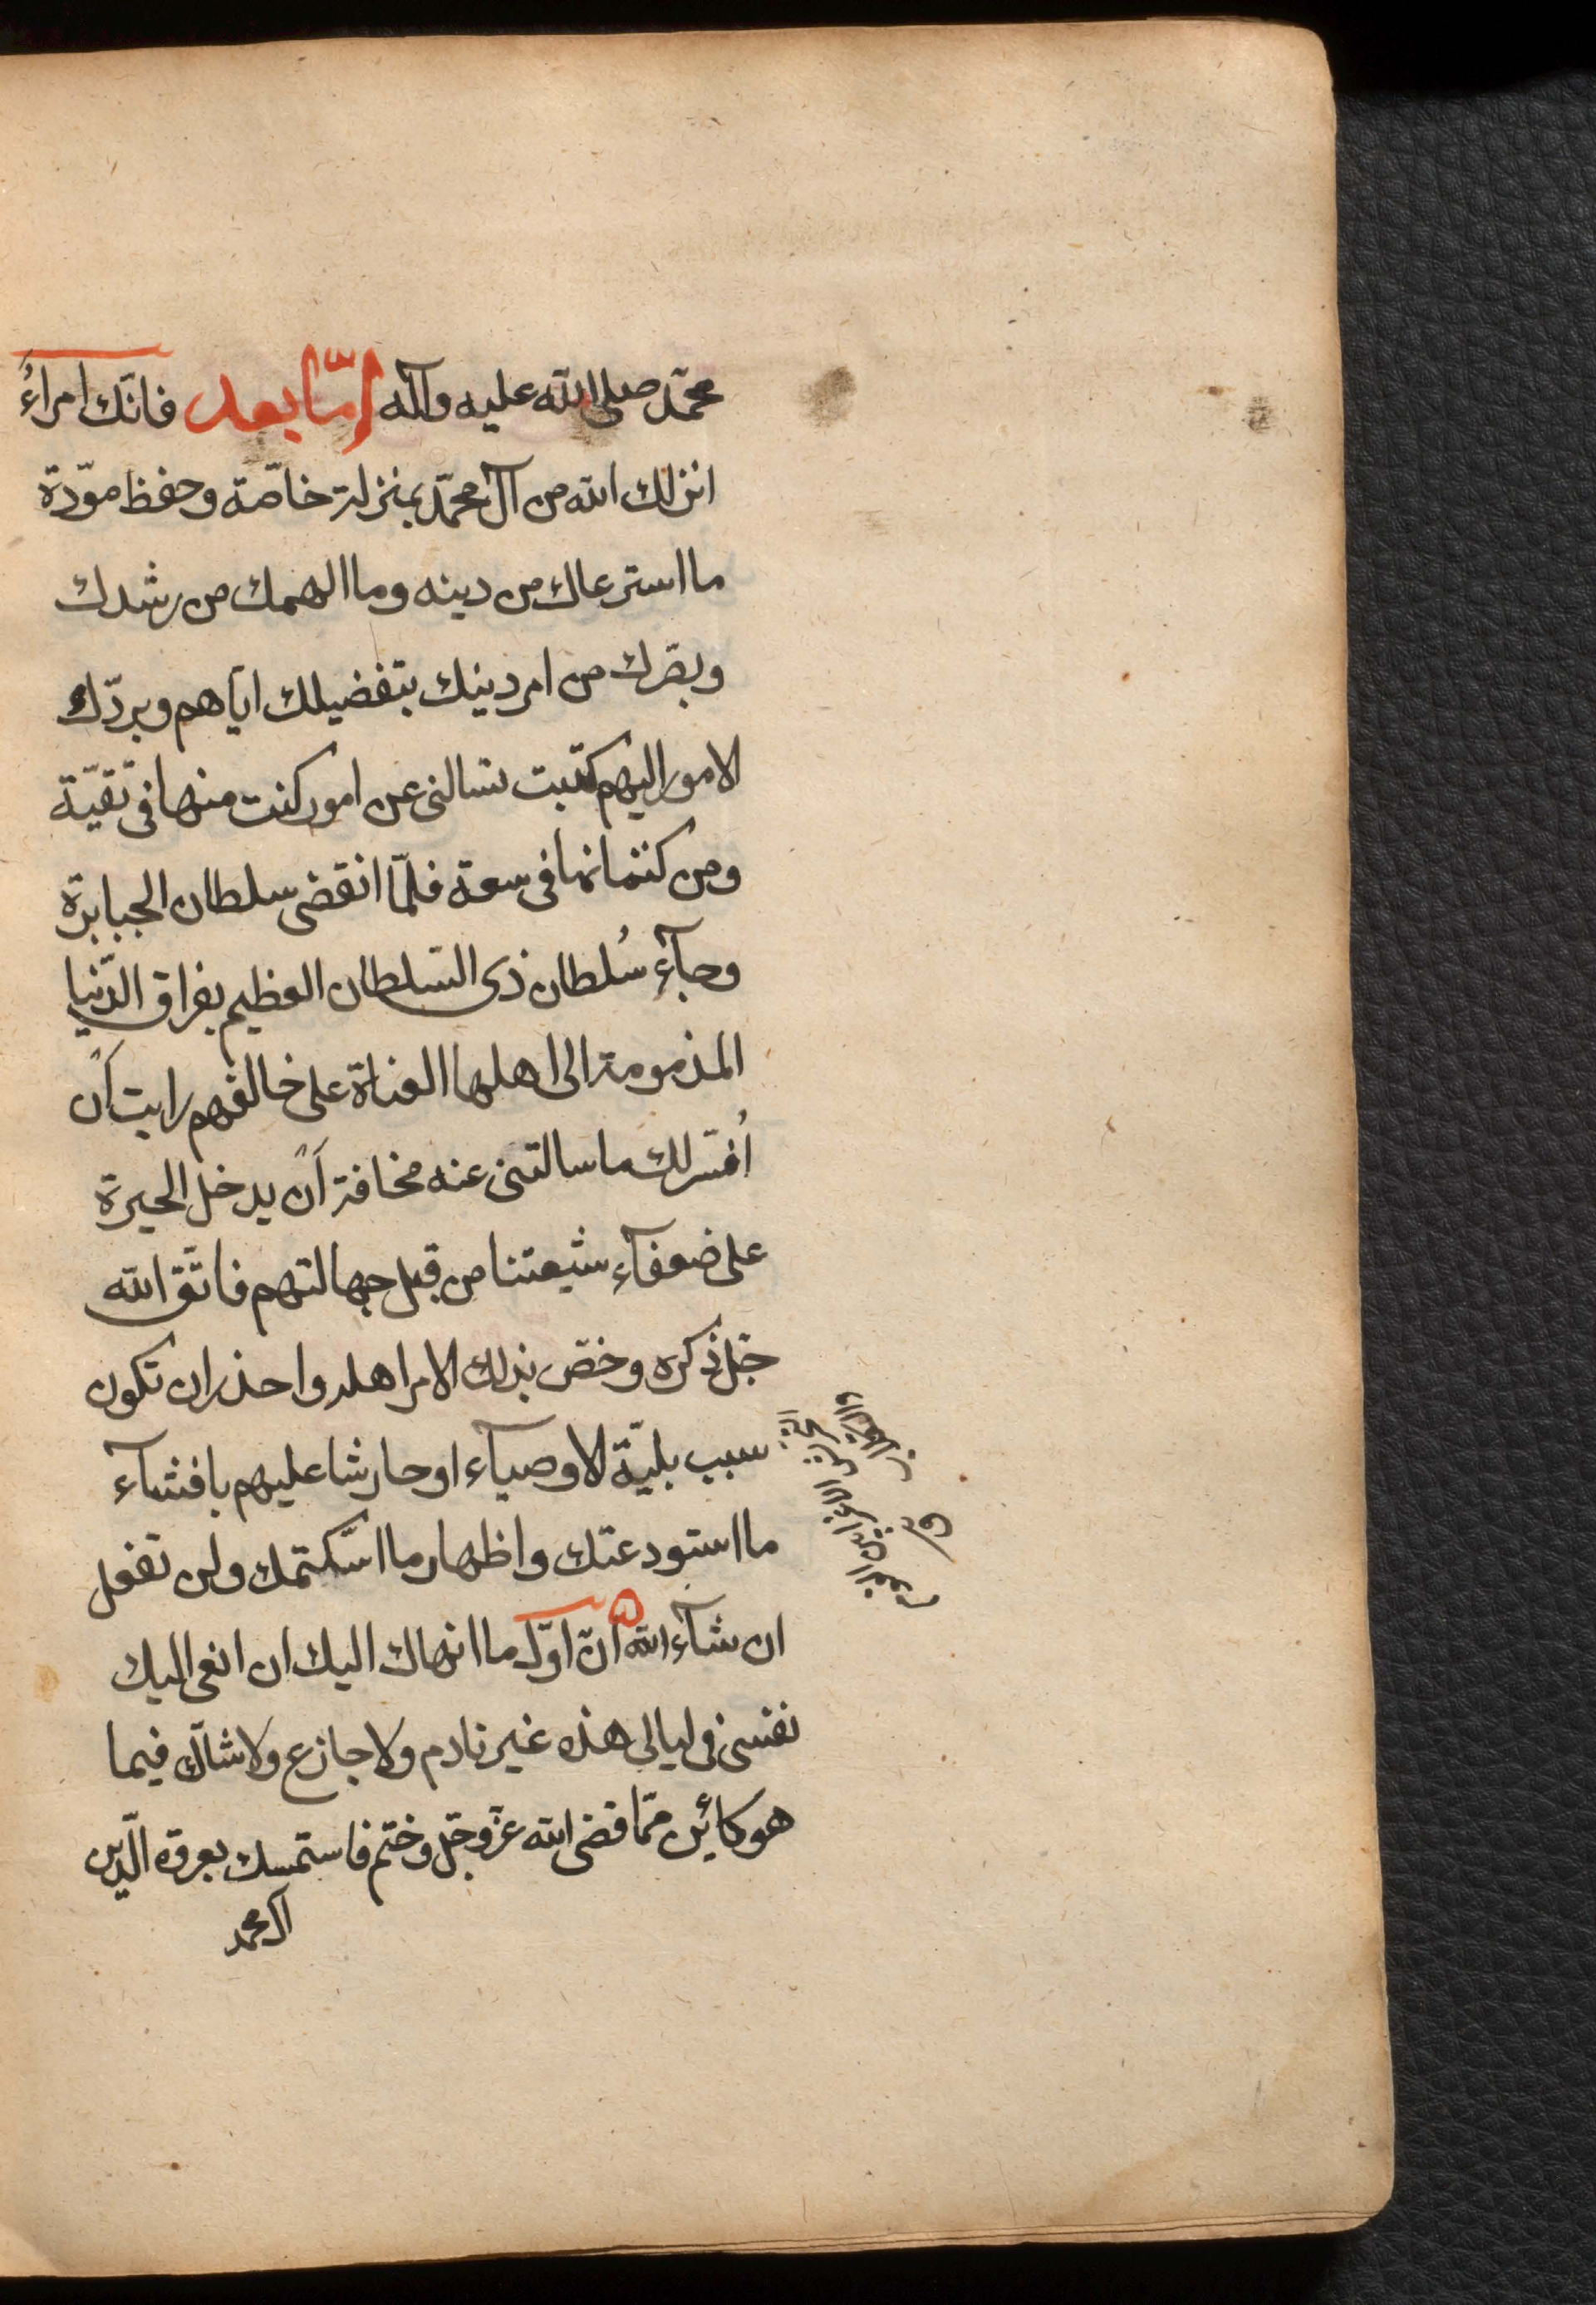 محمّد صلى الله عليه وآله امّا بعد فانّك امراءُ
انزلك الله من آل محمّد بمنزلة خاصّة وحفظ موّدة
ما استرعاك من دينه وما الهمك من رشدك
وبصّرك من امر دينك بتفضيلك ايّاهم وبردّك
الامور اليهم كتبت تسالنى عن امور كنت منها فى تقيّة
ومن كتمانها فى سعة فلمّا انقضى سلطان الجبابرة
وجآء سُلطان ذى السّلطان العظيم بفراق الدّنيا
المذمومة الى اهلها العتاة على خالقهم رايت اَن
اُفسّر لك ما سالتنى عنه مخافة اَن يدخل الحيرة
على ضعفآء شيعتنا من قبل جهالتهم فاتّق الله
جلّ ذكره وخصّ بذلك الامر اهله واحذر ان تكون
سبب بليّة الاوصيآء او حارشا عليهم بافشآء
ما استودعتك واظهار ما استكتمتك ولن تفعل
ان شآء الله انّ اوّل ما انهاك اليك ان انعى اليك
نفسى فى ليالى هذه غير نادم ولا جازع ولا شاكّ فيما
هو كائن ممّا قضى الله عزّ وجلّ وختم فاستمسك بعروة الدّين
آل محمد